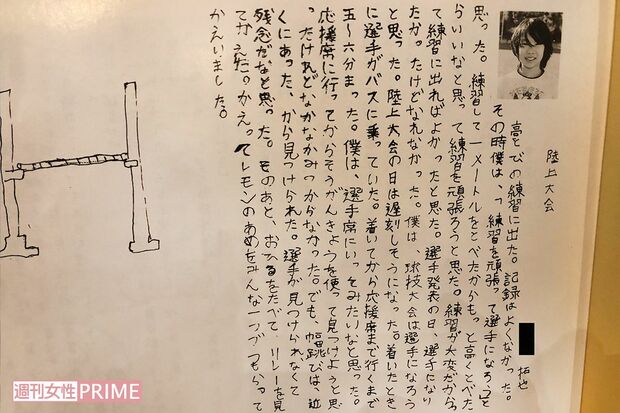 陸上大会
拓也
高とびの練習に出た。記録はよくなかった。
その時僕は、っ練習を頑張って選手になろうと
思った。練習して一メートルをとべたからもっと高くとべた
らいいなと思って練習を頑張ろうと思った。練習が大変だから
て練習に出ればよかったと思った。選手発表の日、選手になり
たかったけどなれなかった。僕は、球技大会は選手になろう
と思った。陸上大会の日は遅刻しそうになった。着いたとき
に選手がバスに乗っていた。着いてから応援席まで行くまで
五～六分まった。僕は、選手席にいってみたいなと思った。
応援席に行ってからそうがんきょうを使って見つけようと思
ったけれどなかなかみつからなかった。でも、幅跳びは、近
くにあった、から見つけられた。選手が見つけられなくて
残念だなと思った。そのあと、おひるをたべて、リレーを見
てかえた。かえってレモンのあめをみんな一つづつもらって
かえいました。
週刊女性PRIME